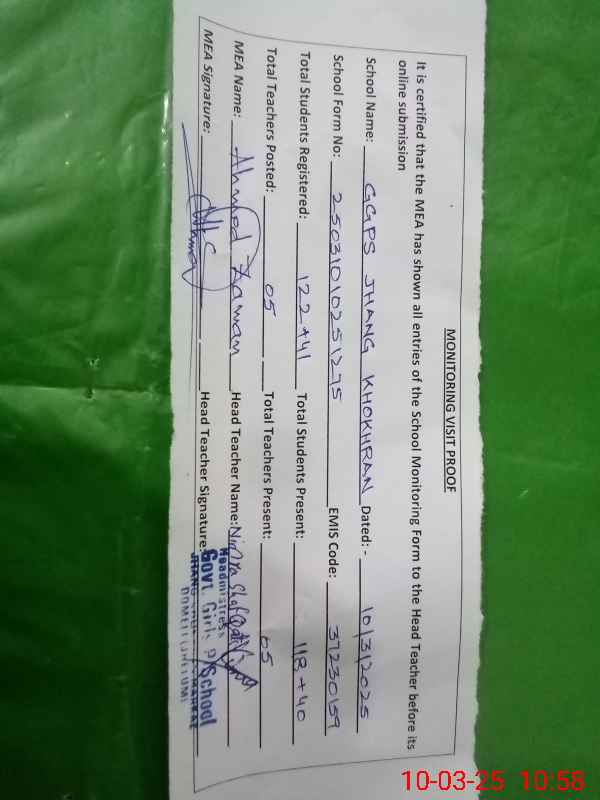 MONITORING VISIT PROOF
It is certified that the MEA has shown all entries of the School Monitoring Form to the Head Teacher before its
online submission
School Name: GGPS JHANG KHOKHRAN Dated: - 10/3/2025
School Form No: 25031010251275 EMIS Code: 37230159
Total Students Registered: 122+41 Total Students Present: 118+40
Total Teachers Posted: 05 Total Teachers Present: 05
MEA Name: Ahmed Zaman Head Teacher Name: Nimra
MEA Signature: Head Teacher Signature:
Headmistress
Govt. Girls P/School
10-03-25 10:58